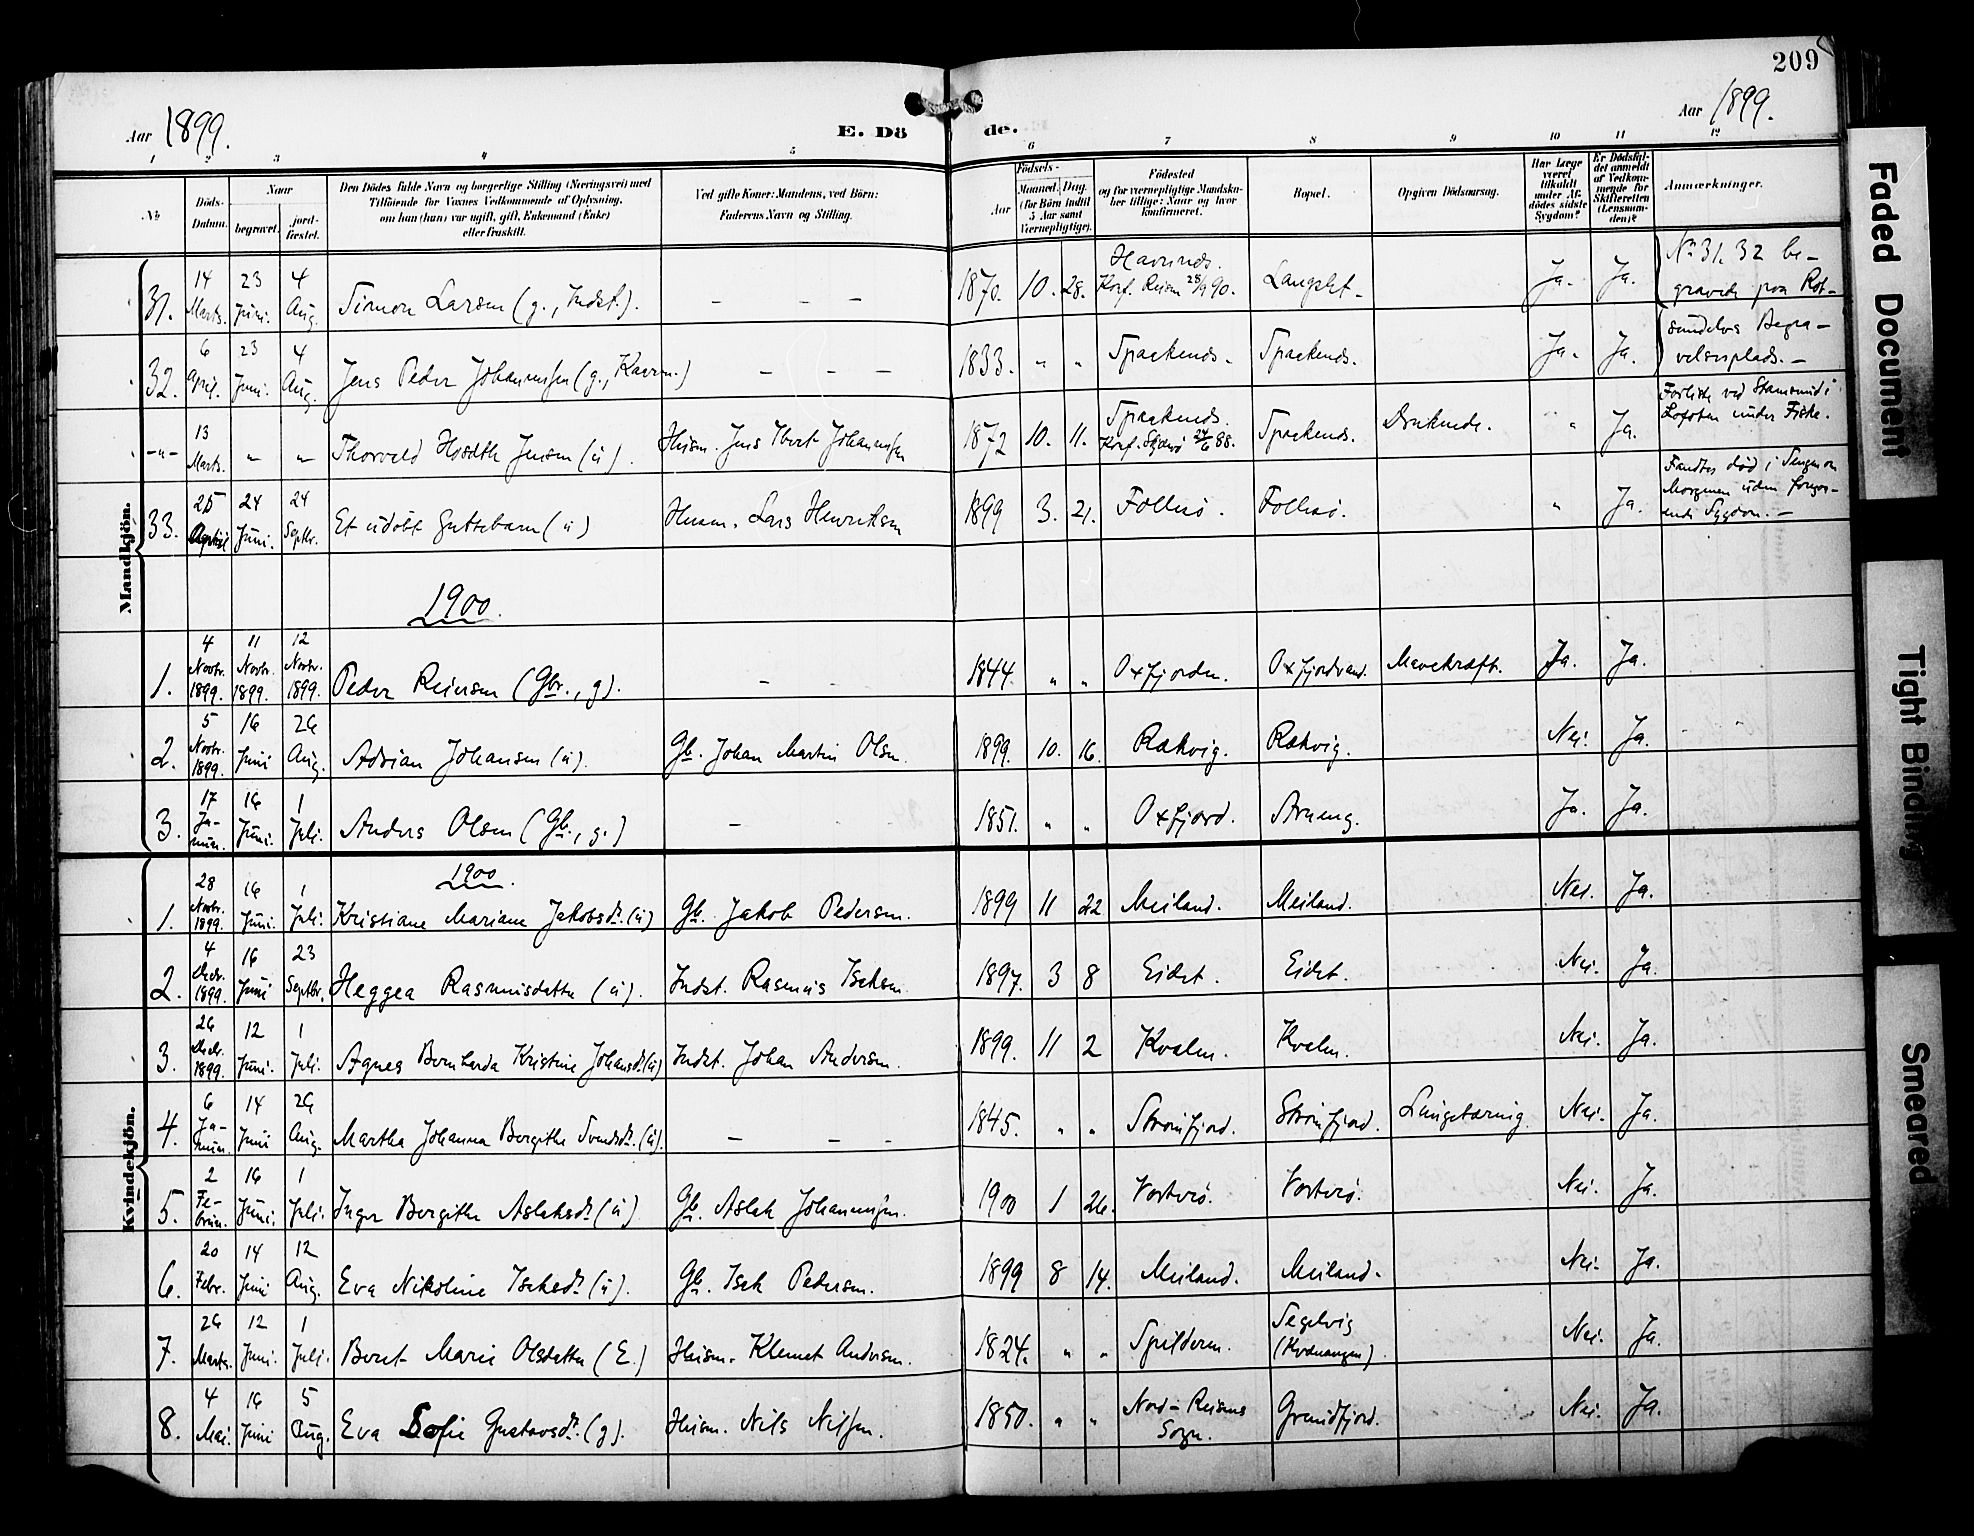 209
Aar 1899.
E. Dö
de.
Aar 1899.
1 2 3 4 5 6 7 8 9 10 11 12
No
Döds-
Datum.
Naar
begravet.
jord-
fæstet.
Den Dödes fulde Navn og borgerlige Stilling (Næringsvei) med
Tilföiende for Voxnes Vedkommende af Oplysning,
om han (hun) var ugift, gift, Enkemand (Enke)
eller fraskilt.
Ved gifte Koner: Mandens, ved Börn:
Faderens Navn og Stilling.
Födsels-
Aar
Maaned.
Dag.
(for Börn indtil
5 Aar samt
Værnepligtige).
Födested
og for værnepligtige Mandska-
ber tillige: Naar og hvor
konfirmeret.
Bopæl.
Opgiven Dödsaarsag.
Har Læge
været
tilkaldt
under Af-
dödes sidste
Sygdom?
Er Dödsfal-
det anmeldt
af Vedkom-
mende for
Skifteretten
(Lensman-
den)?
Anmærkninger.
Mandkjön.
31. 14 Marts. 23 Juni. 4 Aug. Simon Larsen (g., Indst.). – – – 1870. 10. 28. Havnnes. Konf. Reisen 28/9 90. Langslet – Ja. Ja. No 31. 32 be-
gravede paa Rot-
32. 6 April. 23 Juni. 4 Aug. Jens Peder Johannessen (g., Kavm.) – – – 1833. " " Spaakenes. Spaakenes. Ja. Ja. sundelvs Begra-
velsesplads. –
-"- 13 Marts. " " Thorvald Hosdth Jensen (u). Husm. Jens Ibert Johannessen 1872 10. 11. Spaakenes. Konf. Skjervö 24/6 88. Spaakenes. Druknede. " Ja. Forliste ved Stamsund i
Lofoten under Fiske.
33. 25 April 24 Juni. 24 Septbr. Et udöbt Guttebarn (u) Husm. Lars Henriksen 1899 3. 21. Follesö. Follesö. " Ja. Fandtes död i Sengen om
Morgenen uden foregaa-
ende Sygdom. –
1900.
1. 4 Novbr. 1899. 11 Novbr. 1899. 12 Novbr. 1899. Peder Reiersen (Gbr., g). – – 1844. " " Oxfjorden. Oxfjordvand. Mavekræft. Ja. Ja.
2. 5 Novbr. 1899. 16 Juni 26 Aug. Adrian Johansen (u). Gb. Johan Martin Olsen. 1899. 10. 16. Rækvig. Rækvig. Nei. Ja.
3. 17 Ja-
nuar. 16 Juni. 1 Juli. Anders Olsen (Gb., g.) – 1851. " " Oxfjord. Arneng. Ja. Ja.
Kvindekjön.
1900.
1. 28 Novbr. 1899. 16 Juni. 1 Juli. Kristiane Mariane Jakobsdt. (u) Gb. Jakob Pedersen. 1899 11 22 Meiland. Meiland. Nei. Ja.
2. 4 Decbr. 1899. 16 Juni 23 Septbr. Heggea Rasmusdatter (u). Indst. Rasmus Isaksen. 1897. 3 8 Eidet. Eidet. Nei. Ja.
3. 26 Decbr. 1899. 12 Juni. 1 Juli. Agnes Bernharda Kristine Johansdt. (u) Indst. Johan Andersen. 1899. 11 2 Kvalen. Kvalen. Nei. Ja.
4. 6 Ja-
nuar. 14 Juni 26 Aug. Martha Johanna Bergithe Svendsdt. (u). – – – 1845. " " Strömfjord. Strömfjord. Lungetæring. Nei. Ja.
5. 2 Fe-
bruar. 16 Juni. 1 Juli. Inger Bergithe Aslaksdt. (u). Gb. Aslak Johannessen. 1900 1 26. Vorterö. Vorterö. Nei. Ja.
6. 20 Febr. 14 Juni 12 Aug. Eva Nikoline Isaksdt. (u). Gb. Isak Pedersen. 1899 8 14. Meiland. Meiland. Nei. Ja.
7. 26 Marts. 12 Juni. 1 Juli. Beret Marie Olsdatter (E.) Husm. Klemet Andersen. 1824. " " Spilderen. Segelvig (Kvænangen). Nei. Ja.
8. 4 Mai. 16 Juni 5 Aug. Eva Sofie Gustavsdt. (g). Husm. Nils Nilsen. 1850. " " Nord-Reisens
Sogn. Grundfjord. Nei. Ja.
Faded Document
Tight Binding
Smeared